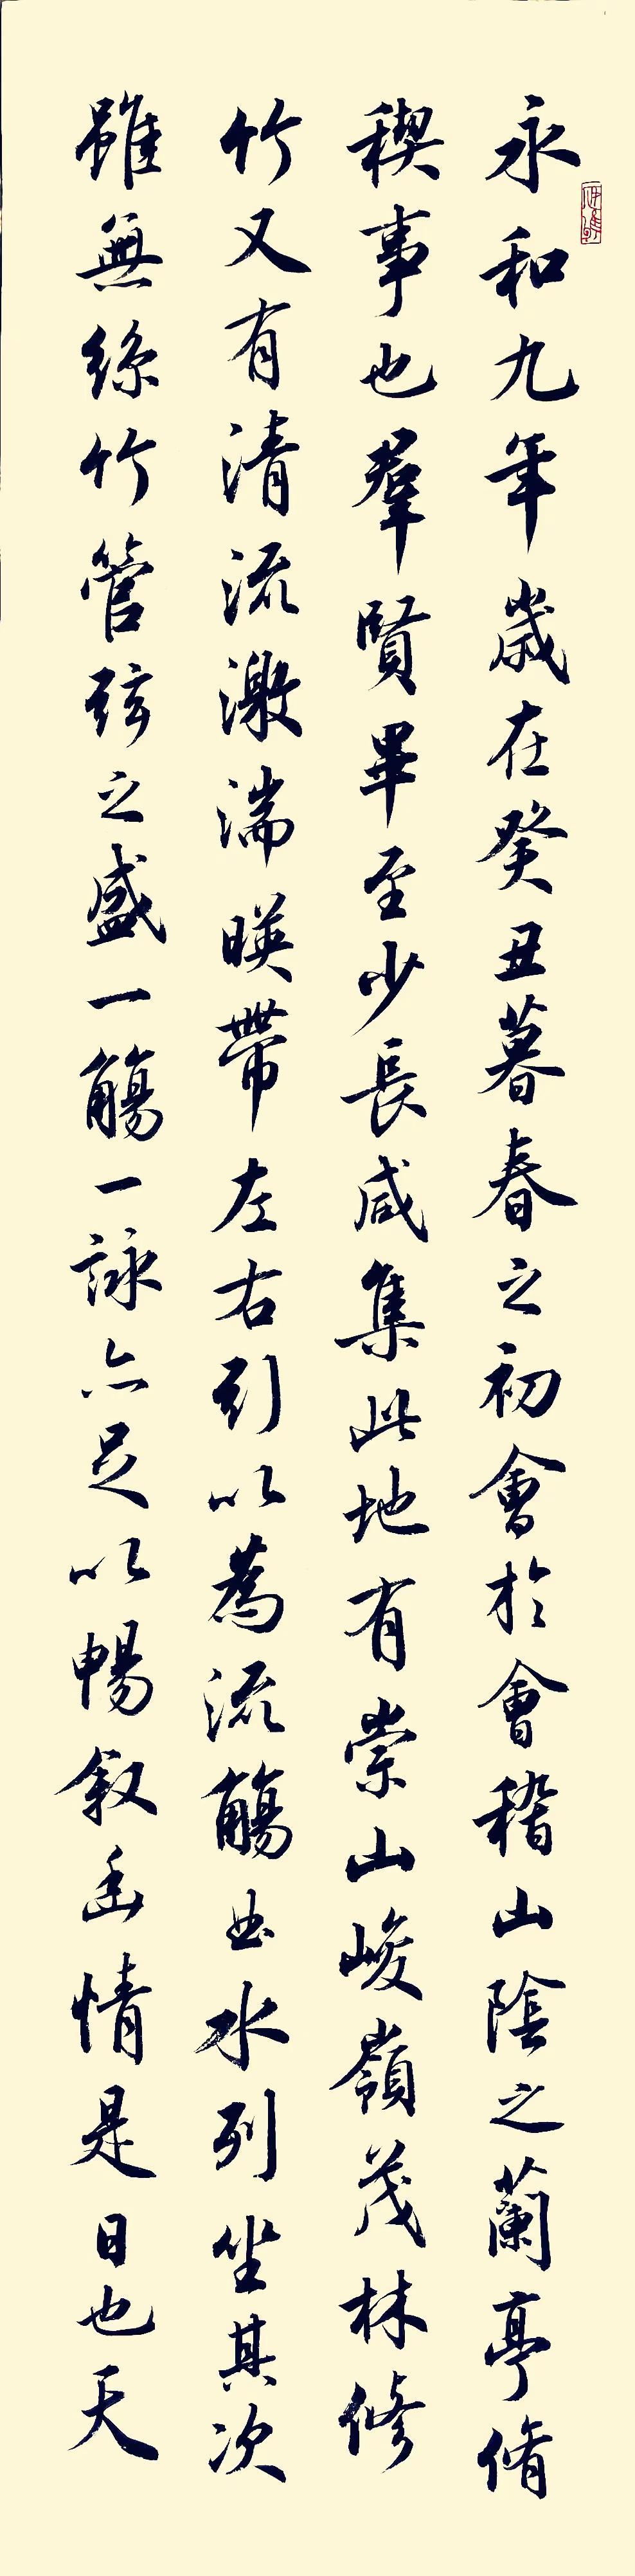 永和九年歲在癸丑暮春之初會於會稽山陰之蘭亭脩
稧事也羣賢畢至少長咸集此地有崇山峻嶺茂林修
竹又有清流激湍暎帶左右引以為流觴曲水列坐其次
雖無絲竹管弦之盛一觴一詠亦足以暢敘幽情是日也天